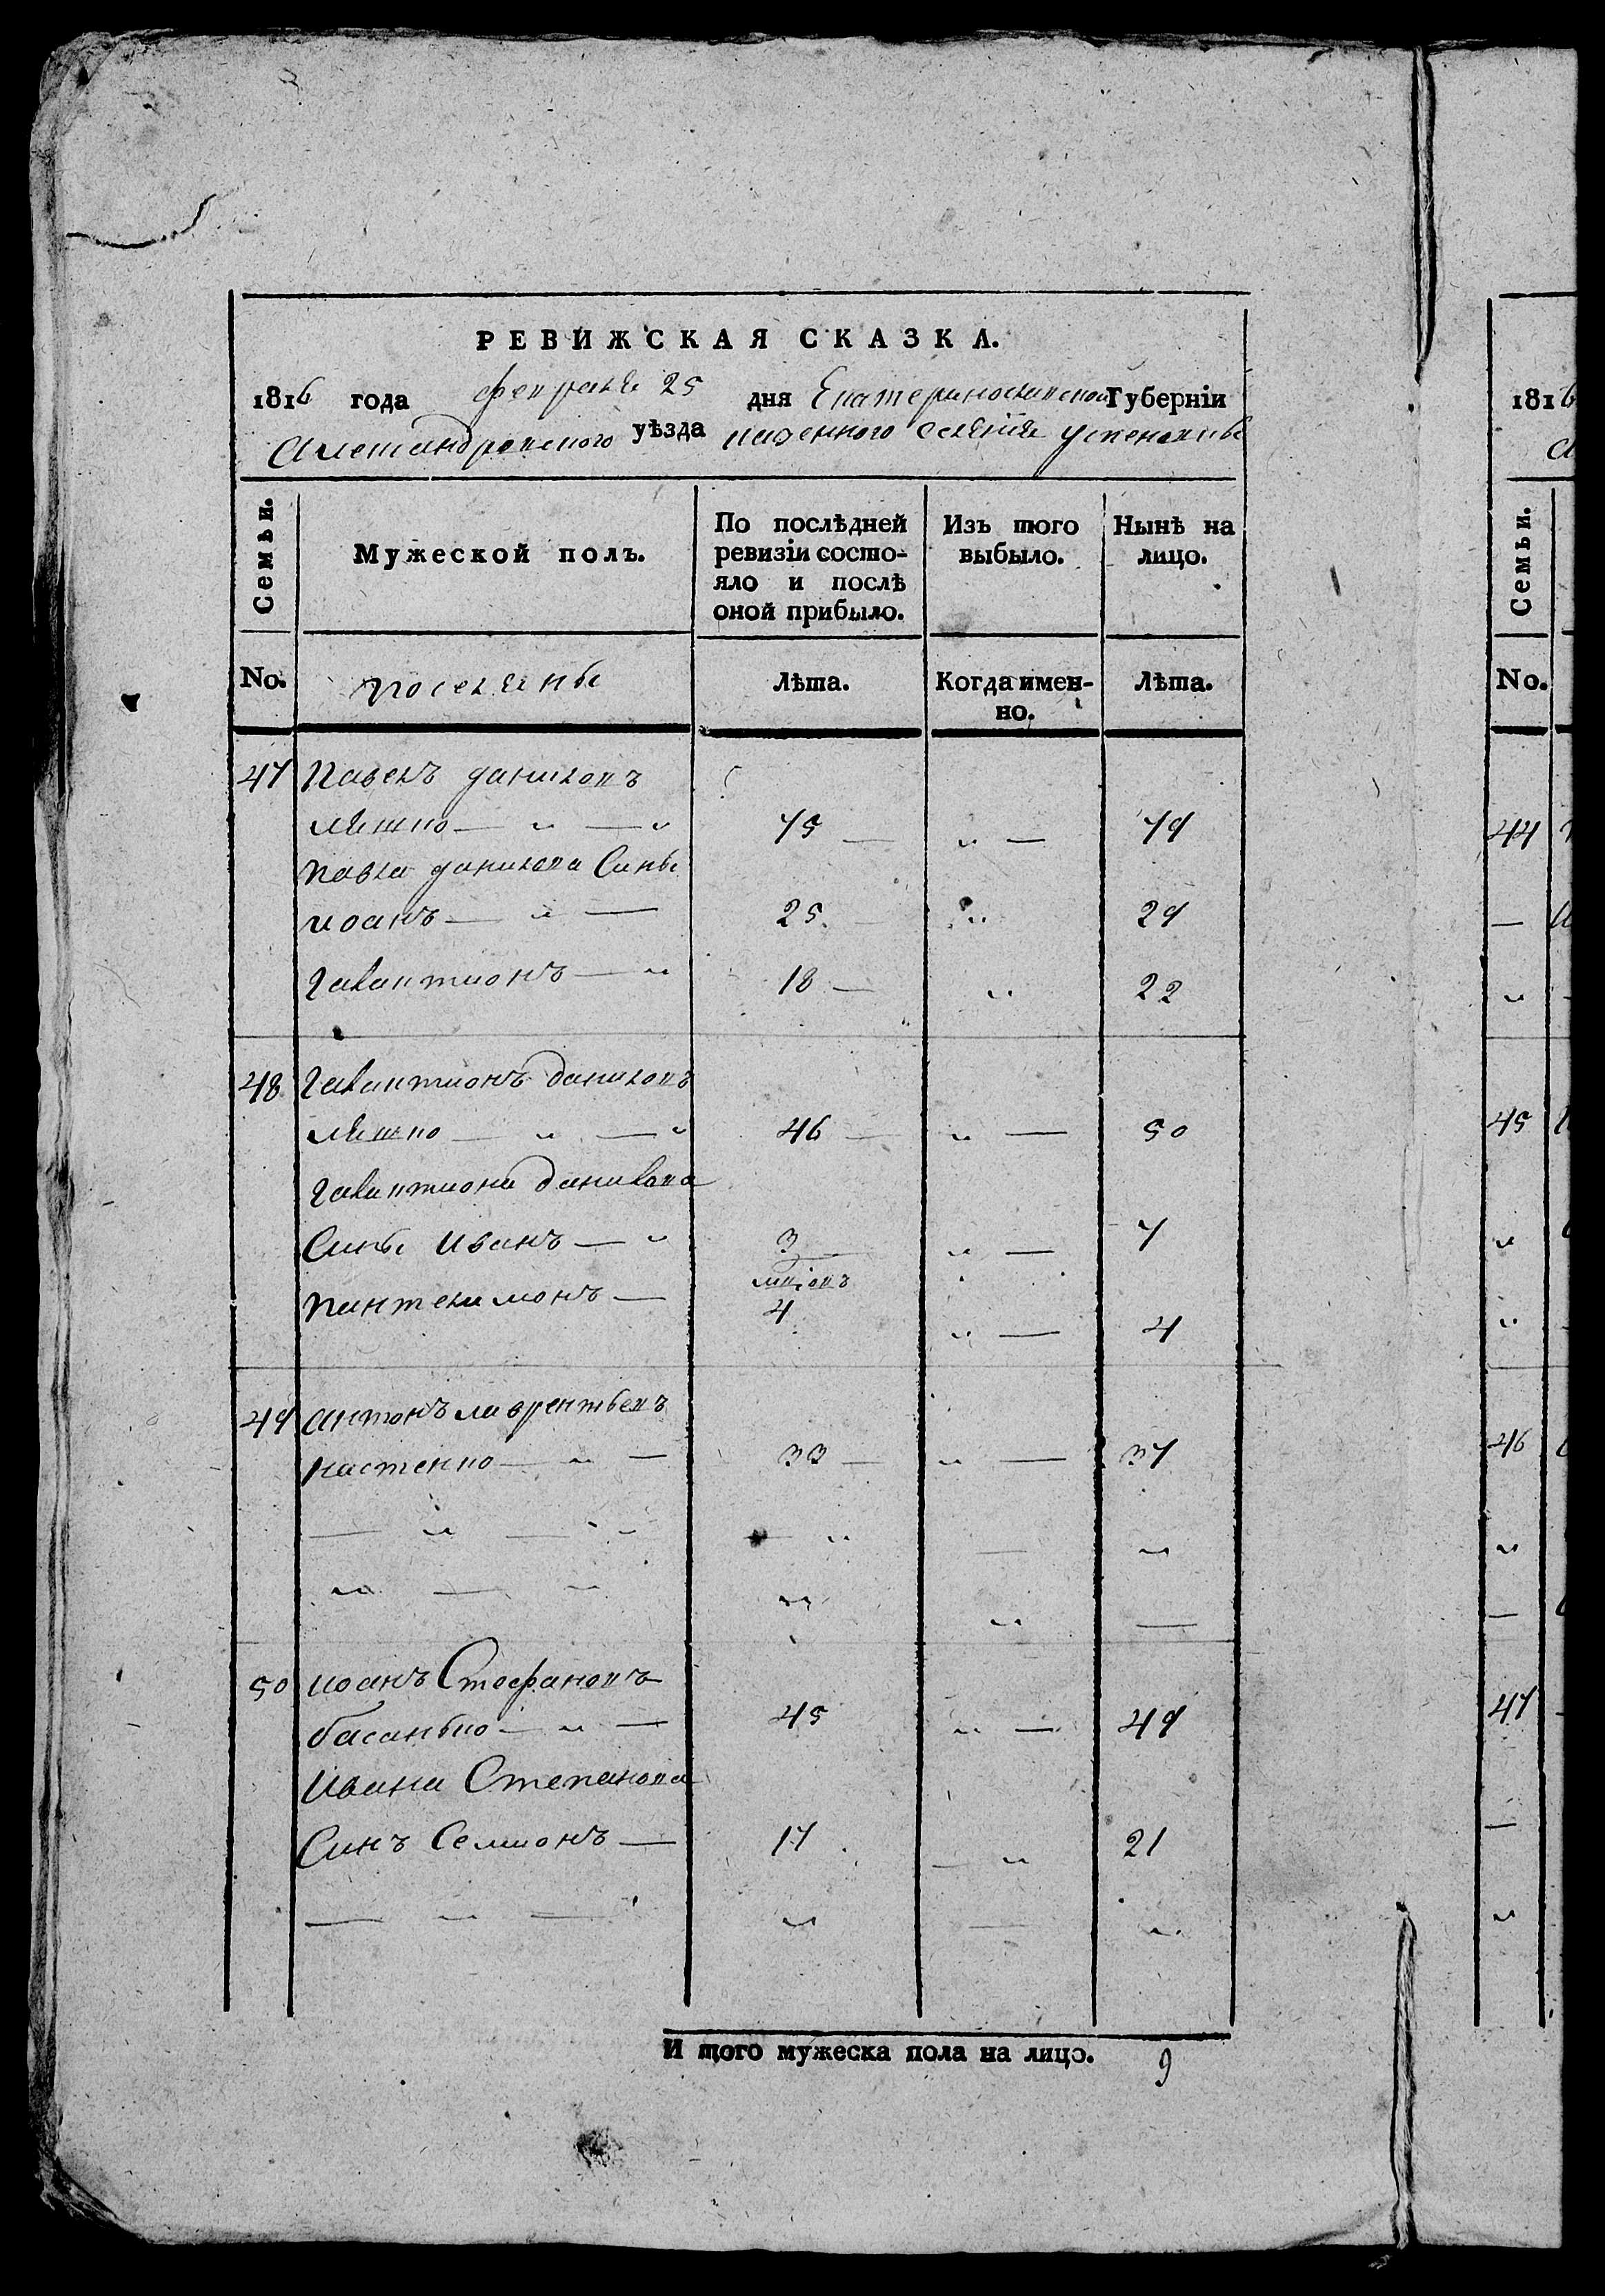 РЕВИЖСКАЯ СКАЗКА.
1816 года февраля 25 дня Екатеринославской Губерніи
Александровского уѣзда казенного селенія Успеновки
Семьи. Мужеской полъ. По послѣдней ревизіи состояло и послѣ оной прибыло. Изъ того выбыло. Нынѣ на лицо.
No. поселяны Лѣта. Когда именно. Лѣта.
47 Павелъ даниловъ
ляшко — " — " 75 — " — 79
павла данилова Сины
иоанъ — " — 25 " 29
Галактионъ — " 18 — " 22
48 Галактионъ даниловъ
ляшко — " — " 46 — " — 50
галактиона данилова
Сины Иванъ — " 3 " — 7
пантелимонъ — 4 " — 4
49 Антонъ лаврентьевъ
костенко — " — 33 — " — 37
— " — " — " — "
" — " " " —
50 иоанъ Стефановъ
басанько — " — 45 " — 49
Ивана Степанова
Синъ Семионъ — 17 — " 21
— " — " — "
И того мужеска пола на лицо. 9
1816
Семьи.
No.
44
—
"
45
"
"
46
"
—
47
—
"